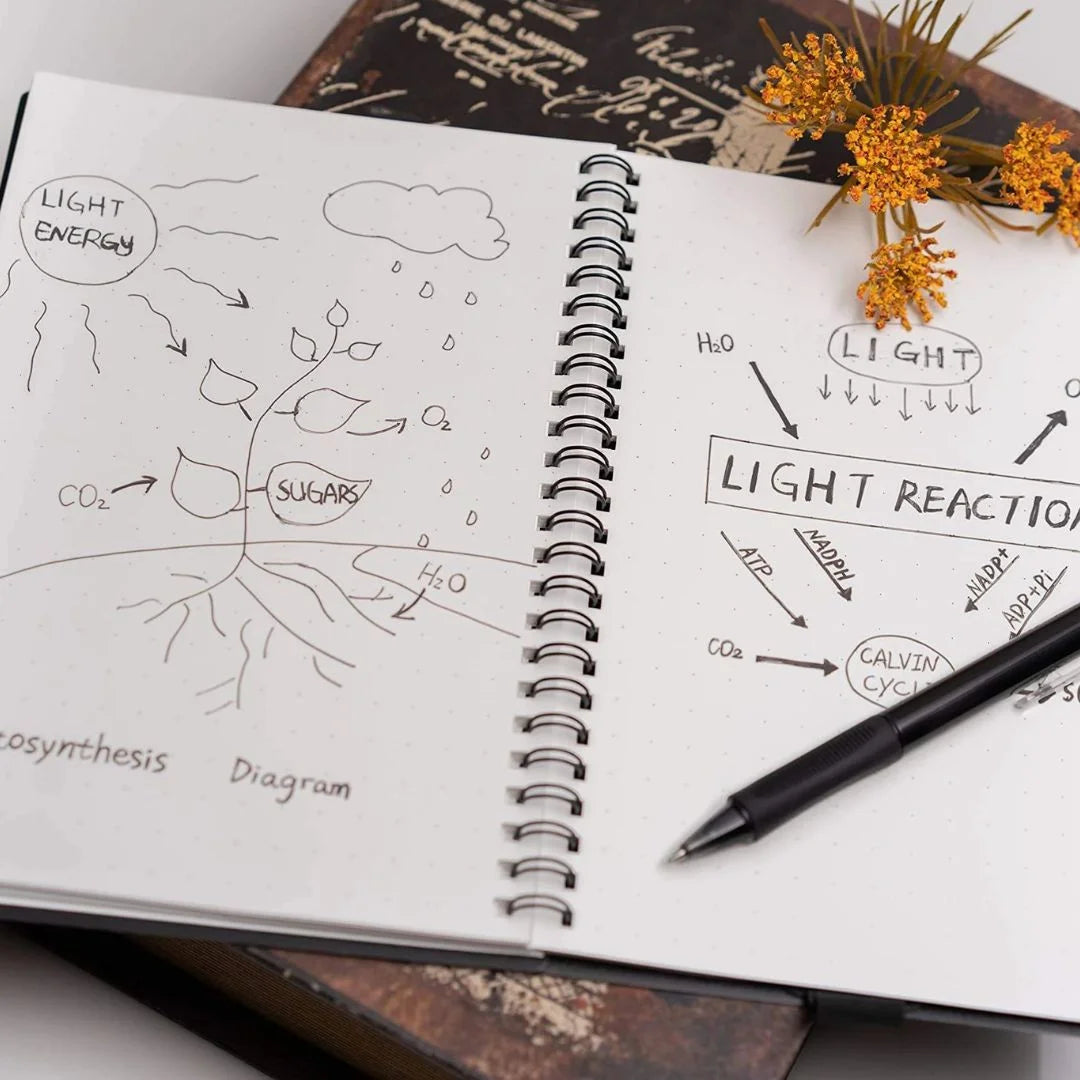 LIGHT
ENERGY
O₂
CO₂
SUGARS
H₂O
tosynthesis Diagram
H₂O
LIGHT
O
LIGHT REACTIO
ATP
NADPH
NADP+
ADP+Pi
CO₂
CALVIN
CYCL